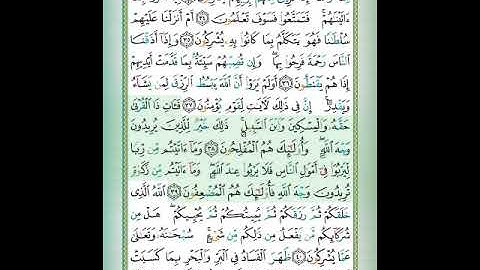 ءَاتَيْنَٰهُمْ ۚ فَتَمَتَّعُوا۟ فَسَوْفَ تَعْلَمُونَ ٣٤ أَمْ أَنزَلْنَا عَلَيْهِمْ
سُلْطَٰنًا فَهُوَ يَتَكَلَّمُ بِمَا كَانُوا۟ بِهِۦ يُشْرِكُونَ ٣٥ وَإِذَآ أَذَقْنَا
ٱلنَّاسَ رَحْمَةً فَرِحُوا۟ بِهَا ۖ وَإِن تُصِبْهُمْ سَيِّئَةٌۢ بِمَا قَدَّمَتْ أَيْدِيهِمْ
إِذَا هُمْ يَقْنَطُونَ ٣٦ أَوَلَمْ يَرَوْا۟ أَنَّ ٱللَّهَ يَبْسُطُ ٱلرِّزْقَ لِمَن يَشَآءُ
وَيَقْدِرُ ۚ إِنَّ فِى ذَٰلِكَ لَءَايَٰتٍ لِّقَوْمٍ يُؤْمِنُونَ ٣٧ فَـَٔاتِ ذَا ٱلْقُرْبَىٰ
حَقَّهُۥ وَٱلْمِسْكِينَ وَٱبْنَ ٱلسَّبِيلِ ۚ ذَٰلِكَ خَيْرٌ لِّلَّذِينَ يُرِيدُونَ
وَجْهَ ٱللَّهِ ۖ وَأُو۟لَٰٓئِكَ هُمُ ٱلْمُفْلِحُونَ ٣٨ وَمَآ ءَاتَيْتُم مِّن رِّبًا
لِّيَرْبُوَا۟ فِىٓ أَمْوَٰلِ ٱلنَّاسِ فَلَا يَرْبُوا۟ عِندَ ٱللَّهِ ۖ وَمَآ ءَاتَيْتُم مِّن زَكَوٰةٍ
تُرِيدُونَ وَجْهَ ٱللَّهِ فَأُو۟لَٰٓئِكَ هُمُ ٱلْمُضْعِفُونَ ٣٩ ٱللَّهُ ٱلَّذِى
خَلَقَكُمْ ثُمَّ رَزَقَكُمْ ثُمَّ يُمِيتُكُمْ ثُمَّ يُحْيِيكُمْ ۖ هَلْ مِن
شُرَكَآئِكُم مَّن يَفْعَلُ مِن ذَٰلِكُم مِّن شَىْءٍ ۚ سُبْحَٰنَهُۥ وَتَعَٰلَىٰ
عَمَّا يُشْرِكُونَ ٤٠ ظَهَرَ ٱلْفَسَادُ فِى ٱلْبَرِّ وَٱلْبَحْرِ بِمَا كَسَبَتْ